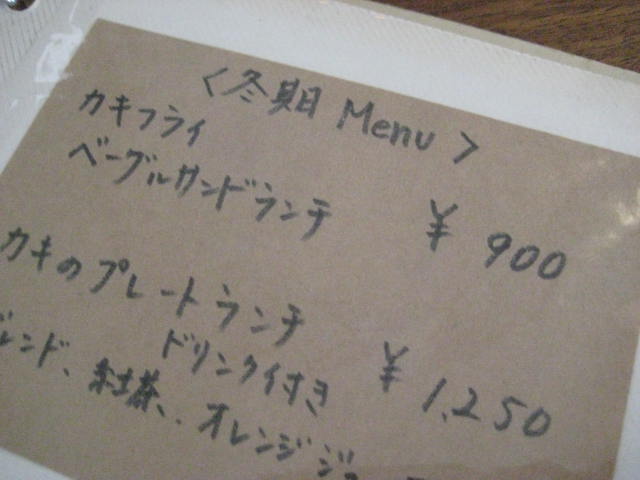 <冬期 Menu>
カキフライ
ベーグルサンドランチ ¥900
カキのプレートランチ
ドリンク付き ¥1,250
レンド、紅茶、オレンジジュ